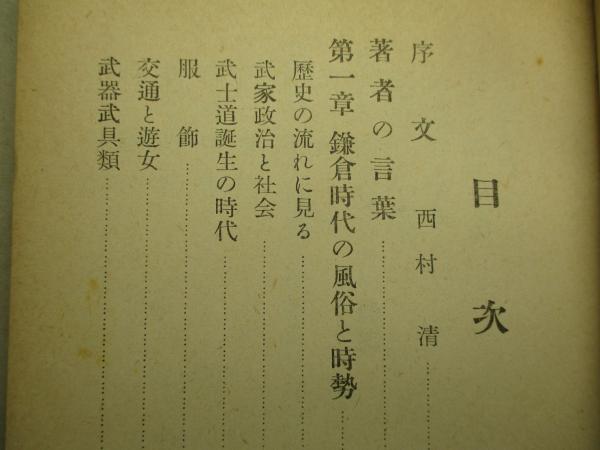 目次
序文 西村 清
著者の言葉
第一章 鎌倉時代の風俗と時勢
歴史の流れに見る
武家政治と社会
武士道誕生の時代
服飾
交通と遊女
武器武具類